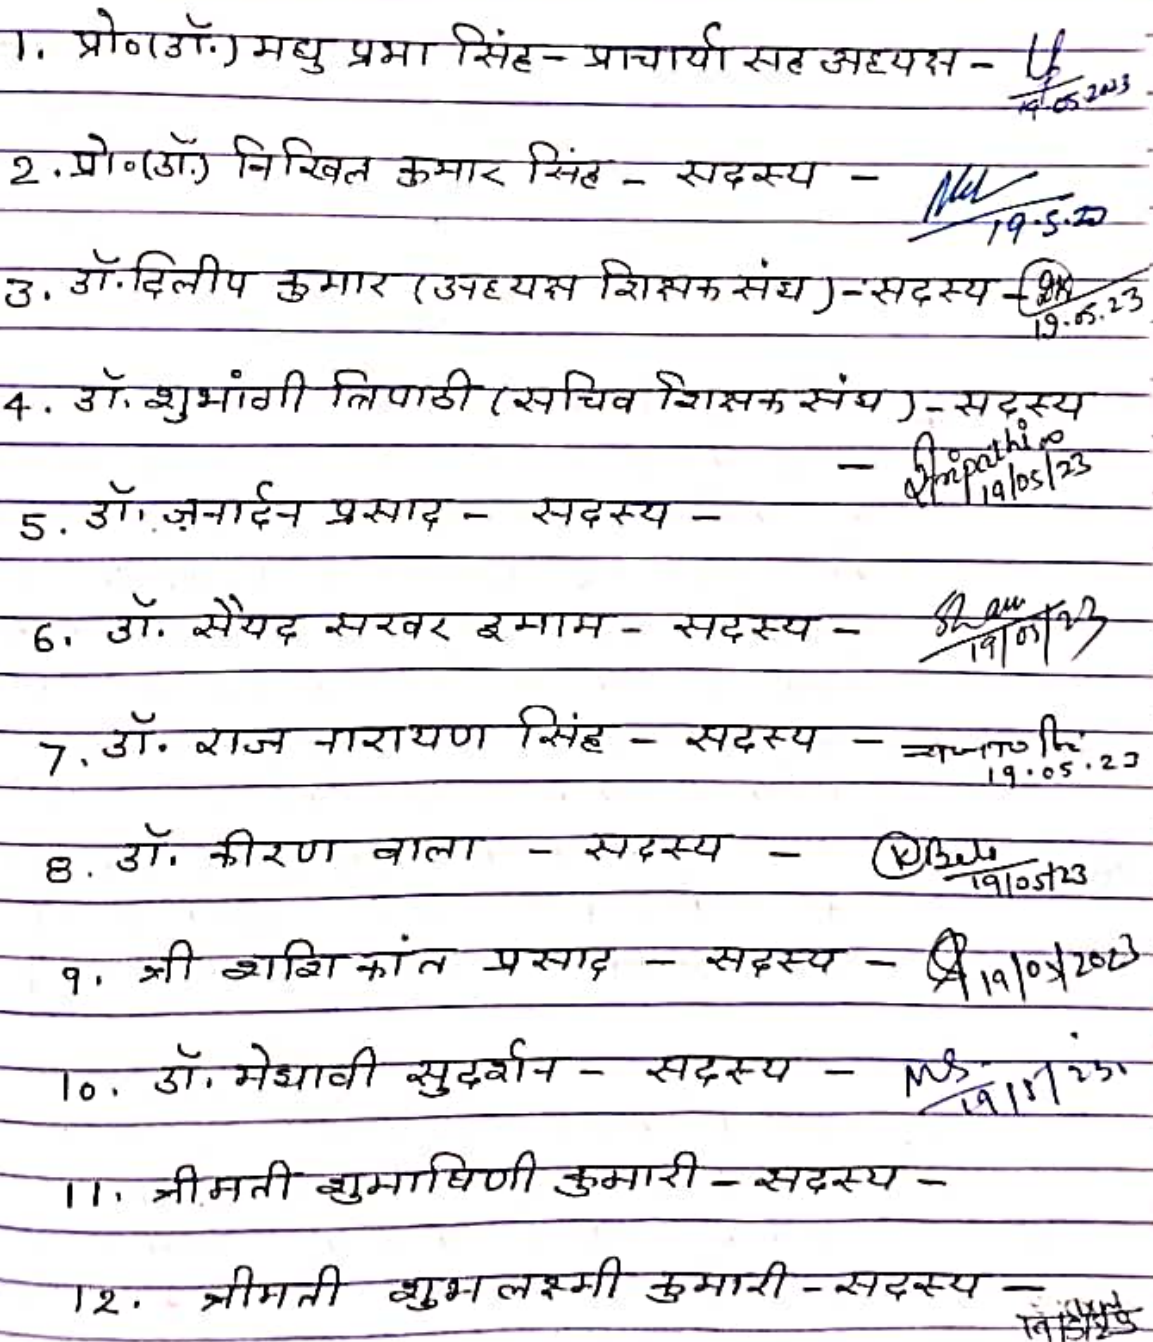 1. प्रो०(डॉ.) मधु प्रभा सिंह - प्राचार्या सह अध्यक्ष -
19.05.2023
2. प्रो०(डॉ.) निखिल कुमार सिंह - सदस्य -
19.5.23
3. डॉ. दिलीप कुमार (अध्यक्ष शिक्षक संघ) - सदस्य -
19.05.23
4. डॉ. शुभांगी त्रिपाठी (सचिव शिक्षक संघ) - सदस्य
- Tripathi
19/05/23
5. डॉ. जनार्दन प्रसाद - सदस्य -
6. डॉ. सैयद सरवर इमाम - सदस्य -
19/05/23
7. डॉ. राज नारायण सिंह - सदस्य -
19.05.23
8. डॉ. कीरण वाला - सदस्य -
19/05/23
9. श्री शशि कांत प्रसाद - सदस्य - 19/05/2023
10. डॉ. मेधावी सुदर्शन - सदस्य - MS
19/5/23
11. श्रीमती शुभाषिणी कुमारी - सदस्य -
12. श्रीमती शुभ लक्ष्मी कुमारी - सदस्य -